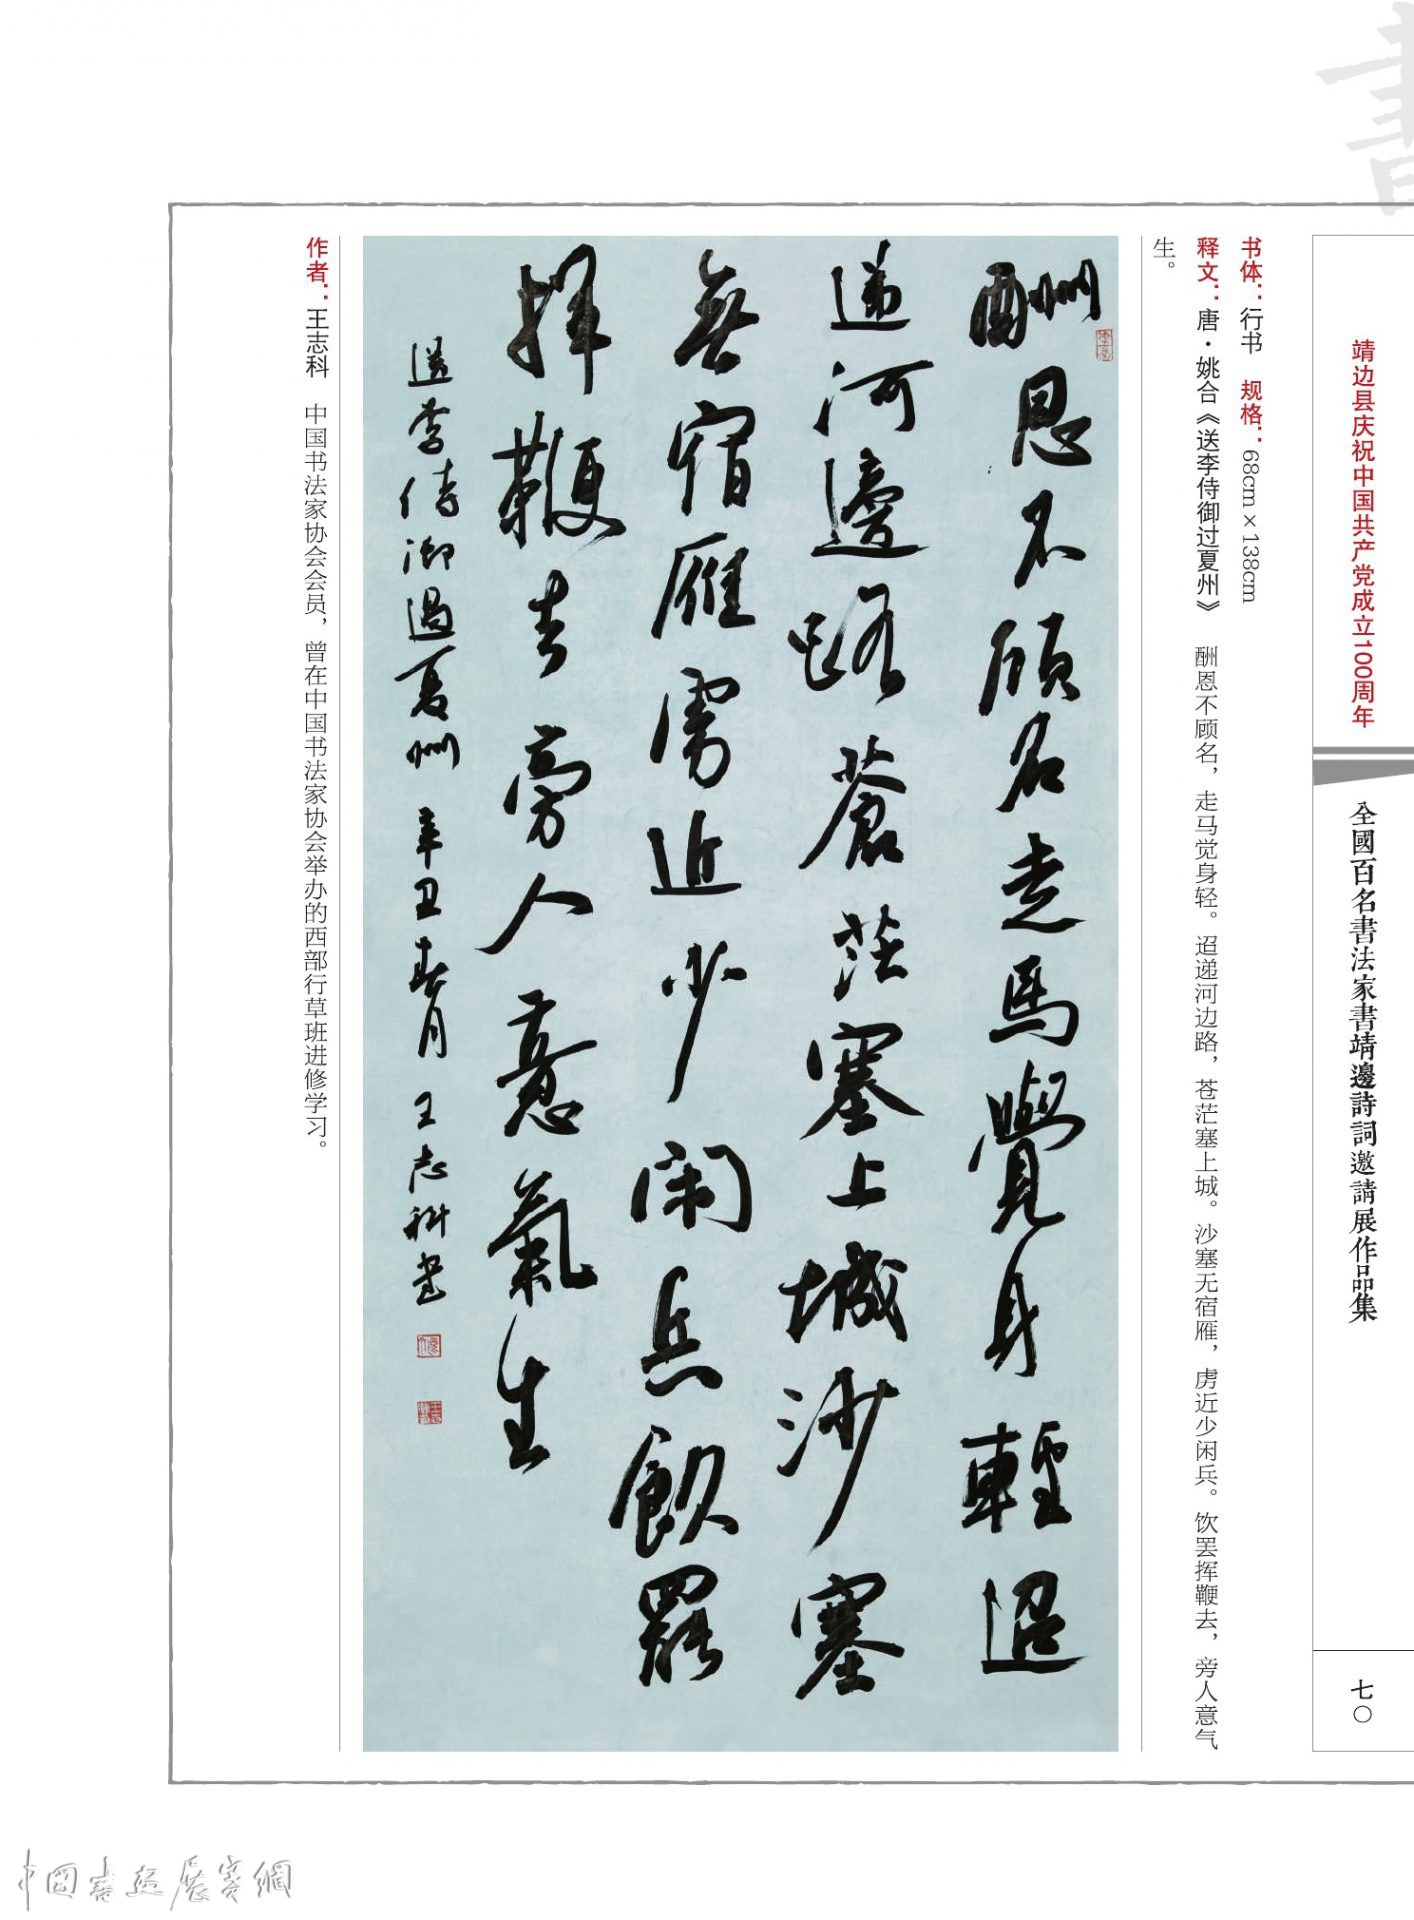 書
靖边县庆祝中国共产党成立100周年
全國百名書法家書靖邊詩詞邀請展作品集
七〇
书体：行书 规格：68cm×138cm
释文：唐·姚合《送李侍御过夏州》 酬恩不顾名，走马觉身轻。迢递河边路，苍茫塞上城。沙塞无宿雁，虏近少闲兵。饮罢挥鞭去，旁人意气
生。
酬恩不顧名走馬覺身輕迢
遞河邊路蒼茫塞上城沙塞
無宿雁虜近少閑兵飲罷
揮鞭去旁人意氣生
送李侍御過夏州 辛丑春月 王志科書
作者：王志科 中国书法家协会会员，曾在中国书法家协会举办的西部行草班进修学习。
中國書畫展賽網